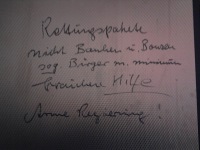 Rettungspakete
nicht Banken u. Bonzen
sog Bürger m. minimum
brauchen Hilfe
Arme Regierung!